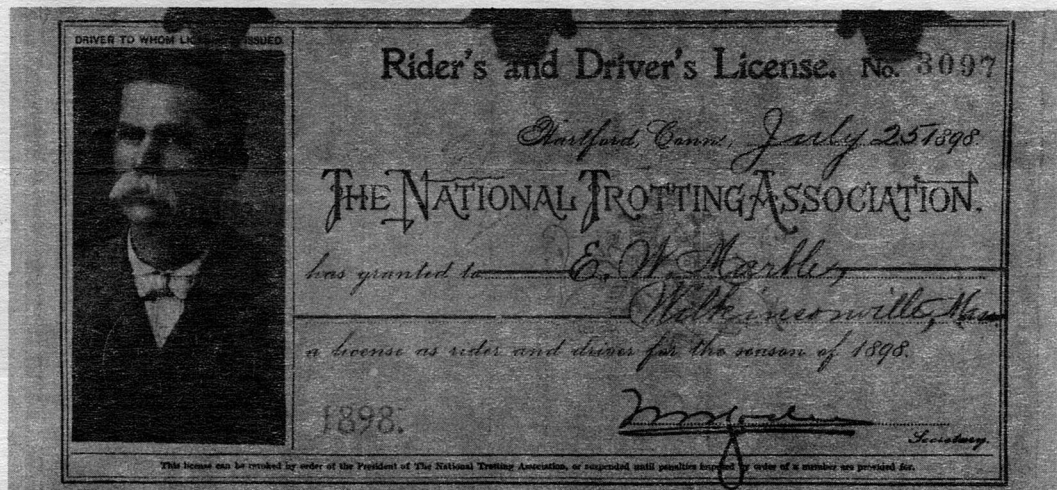 DRIVER TO WHOM LICENSE IS ISSUED
Rider's and Driver's License. No. 3097
Hartford, Conn., July 25 1898.
THE NATIONAL TROTTING ASSOCIATION.
has granted to E. W. Marble,
Wilkinsonville, Mass
a license as rider and driver for the season of 1898.
1898.
Secretary.
This license can be revoked by order of the President of The National Trotting Association, or suspended until penalties imposed by order of a member are provided for.